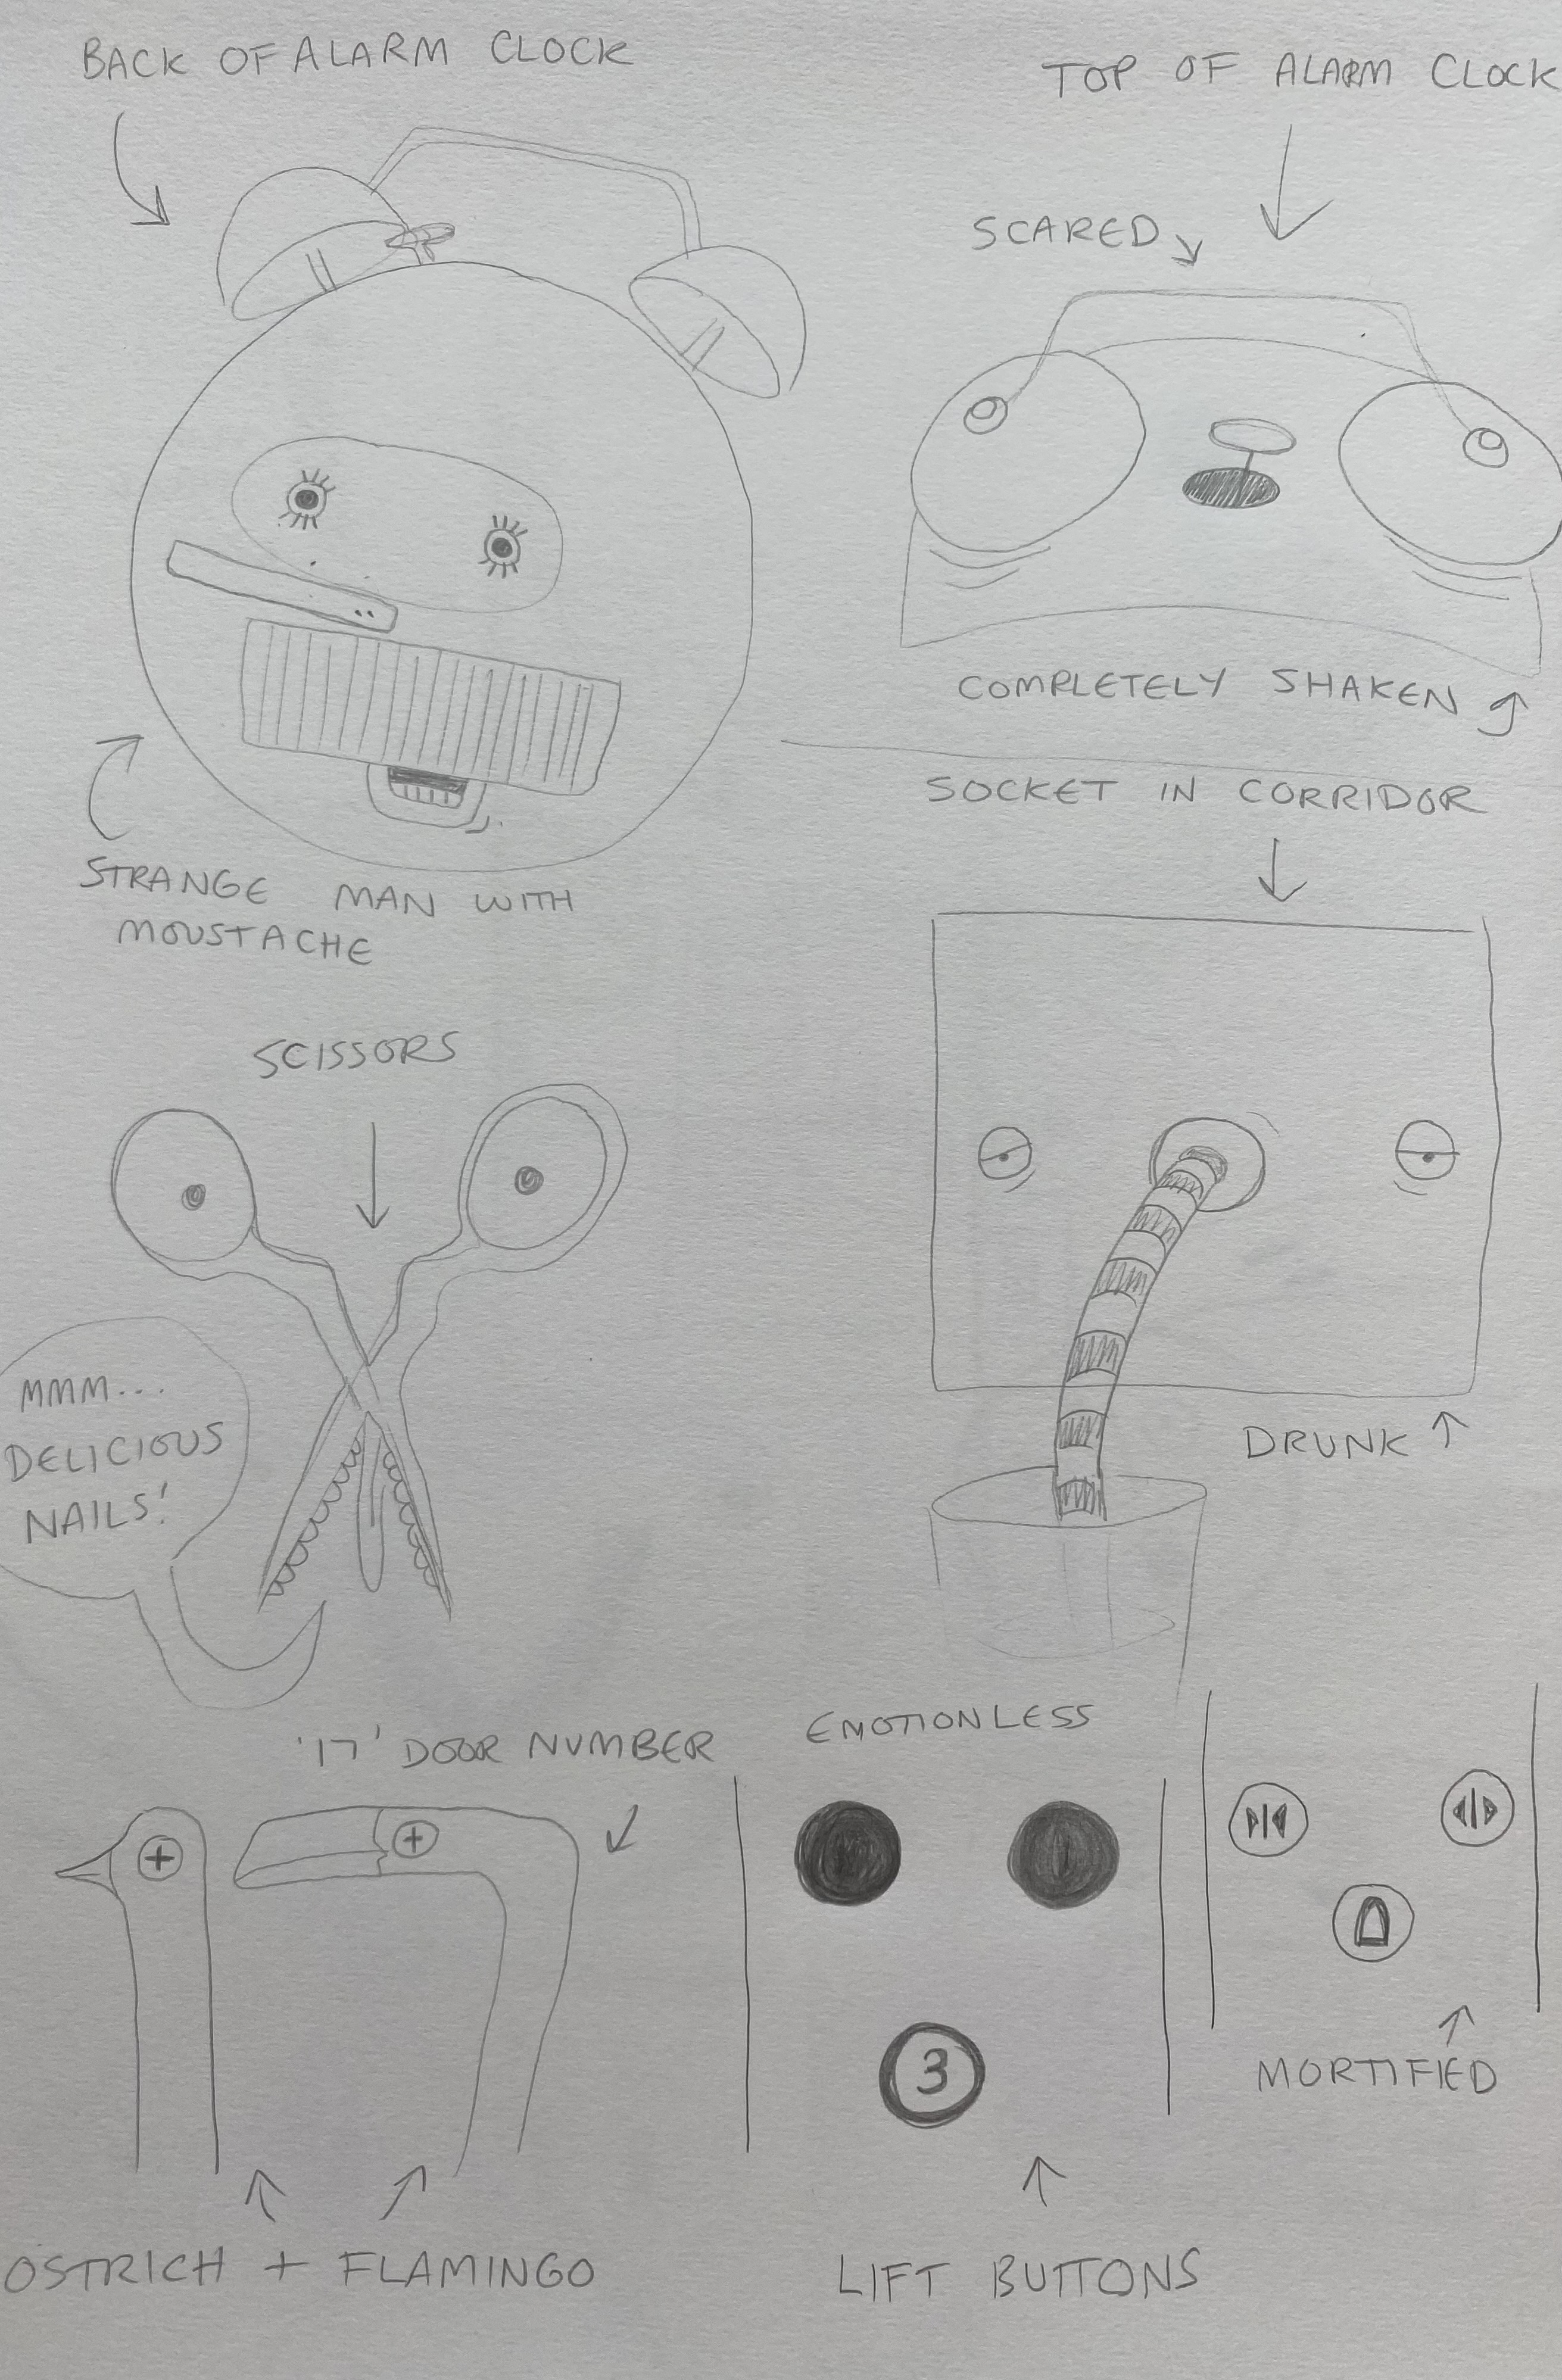 BACK OF ALARM CLOCK
TOP OF ALARM CLOCK
SCARED
COMPLETELY SHAKEN
STRANGE MAN WITH
MOUSTACHE
SOCKET IN CORRIDOR
SCISSORS
MMM...
DELICIOUS
NAILS!
DRUNK
'17' DOOR NUMBER
EMOTIONLESS
3
MORTIFIED
OSTRICH + FLAMINGO
LIFT BUTTONS